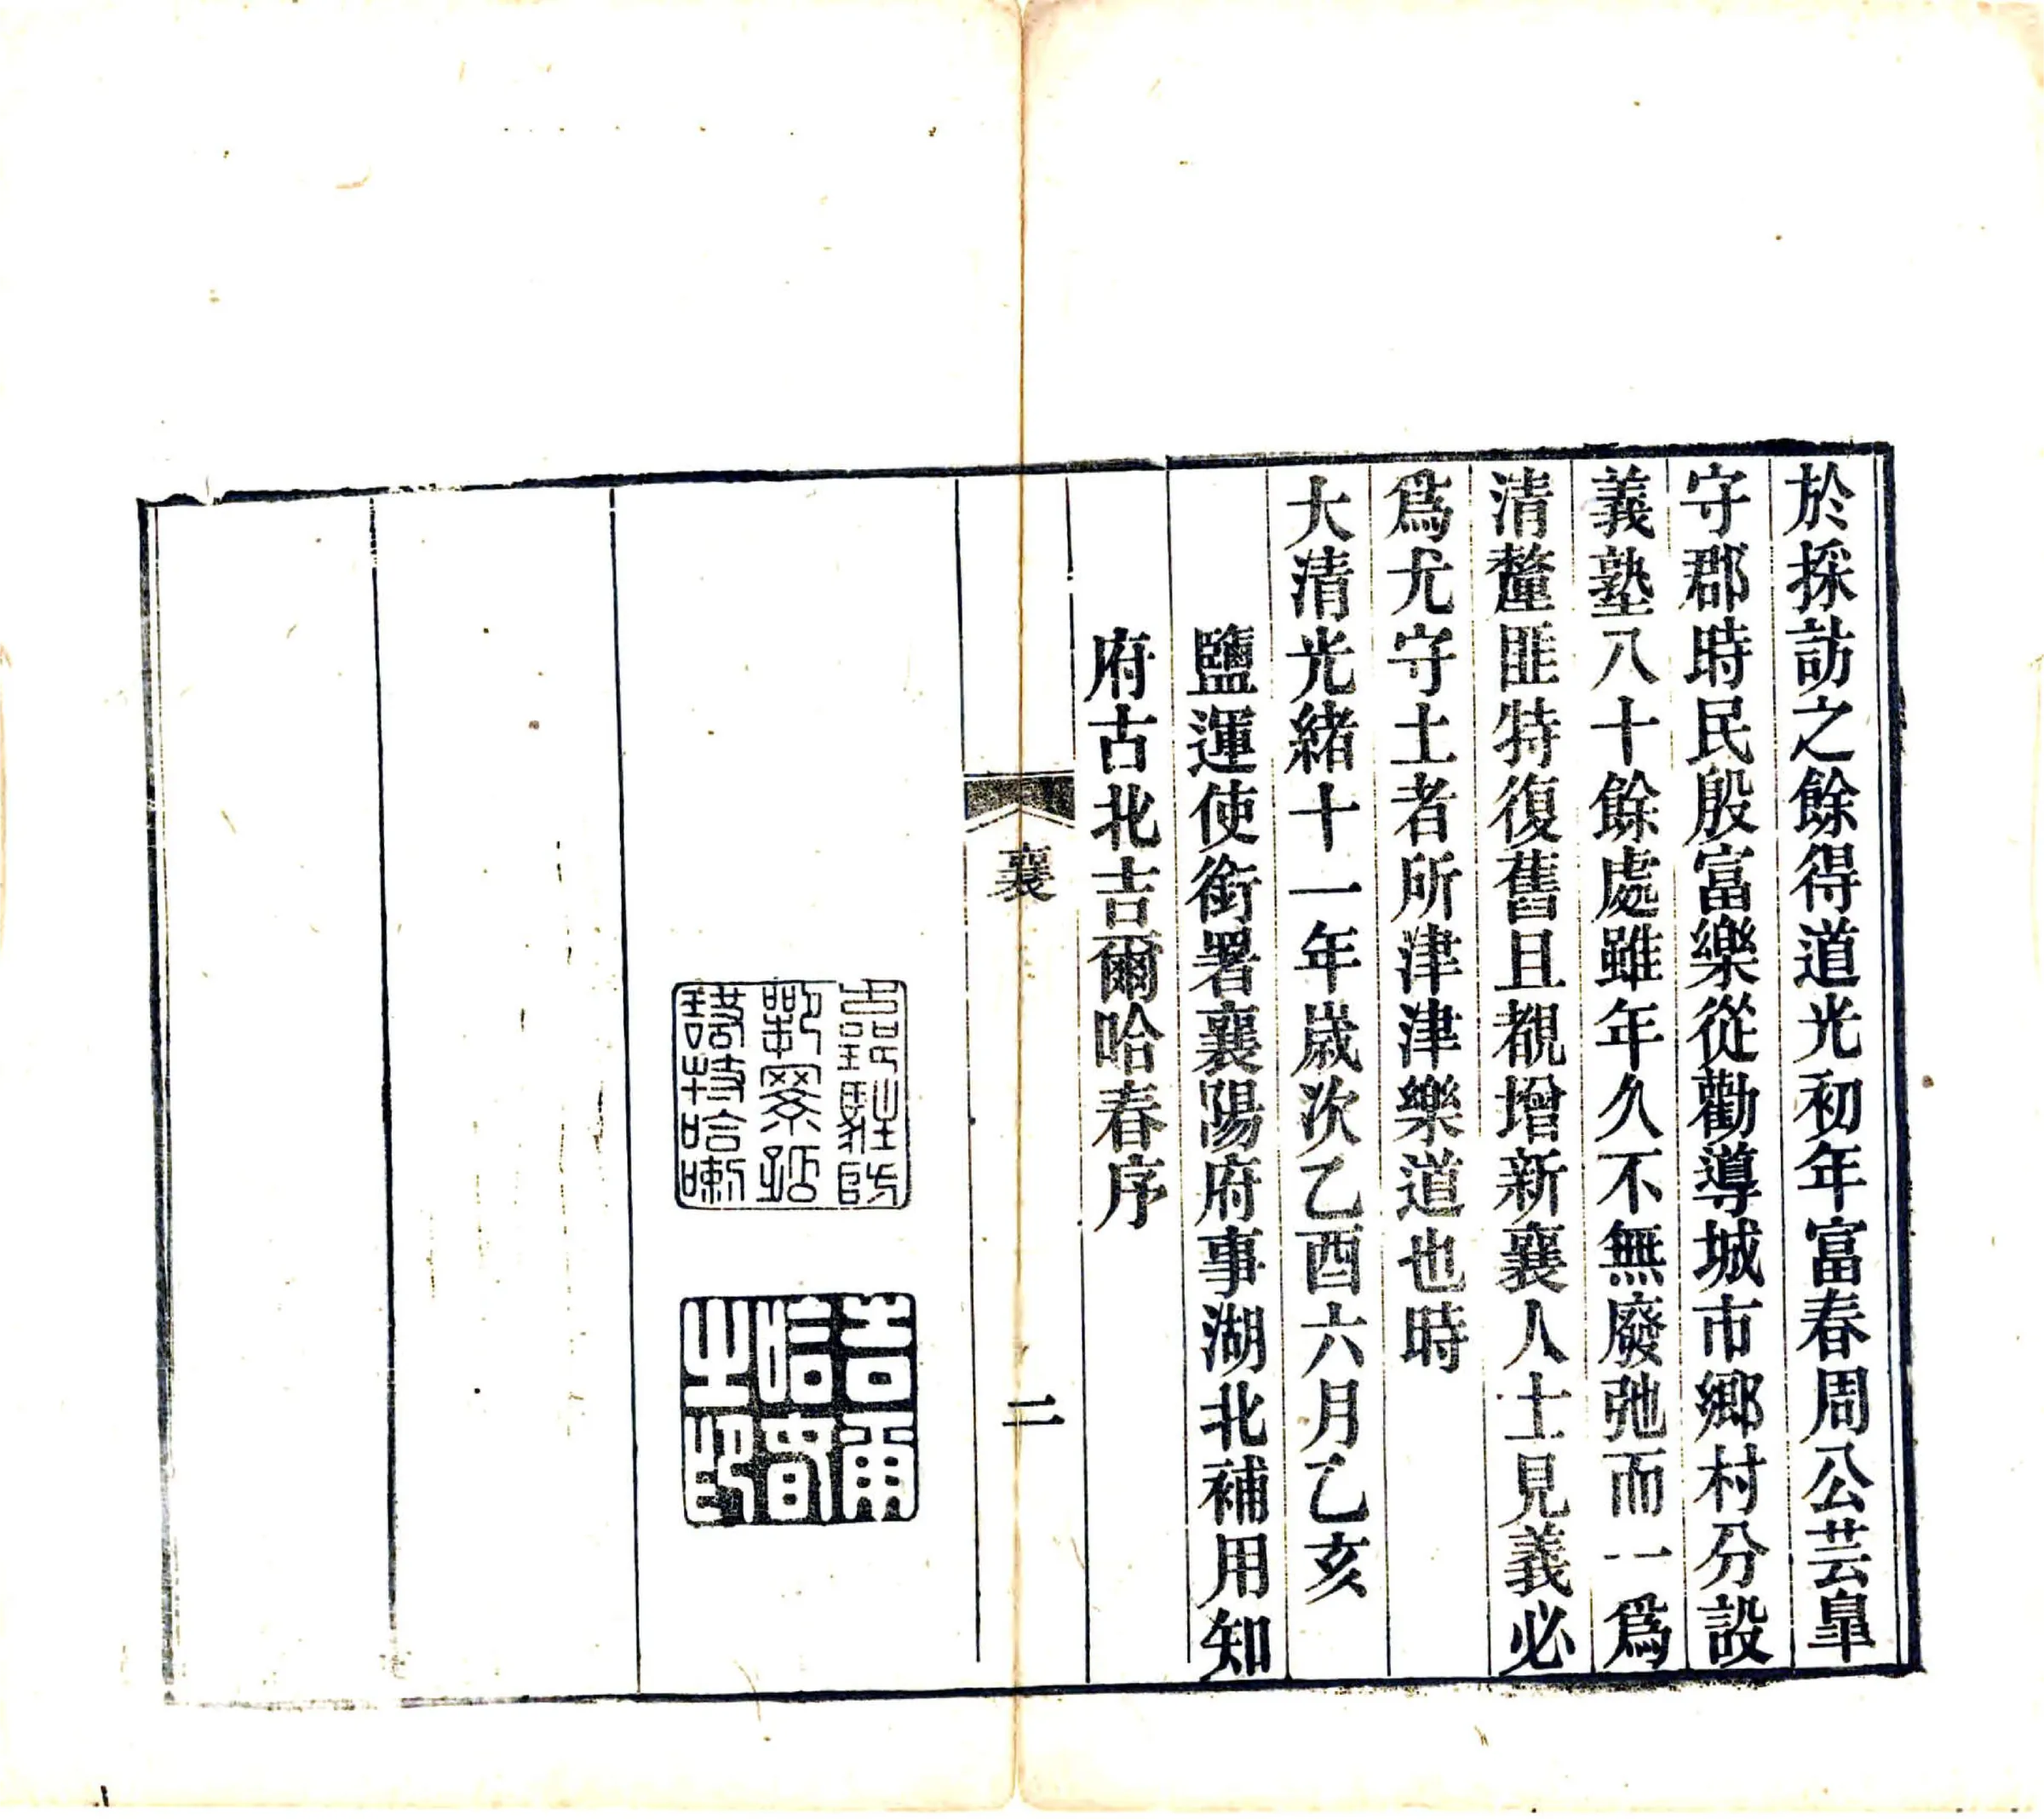 於採訪之餘得道光初年富春周公芸皐
守郡時民殷富樂從勸導城市鄉村分設
義塾八十餘處雖年久不無廢弛而一爲
清釐匪特復舊且覩增新襄人士見義必
爲尤守土者所津津樂道也時
大清光緒十一年歲次乙酉六月乙亥
鹽運使銜署襄陽府事湖北補用知
府古北吉爾哈春序
襄
二
吉爾
哈春
之印